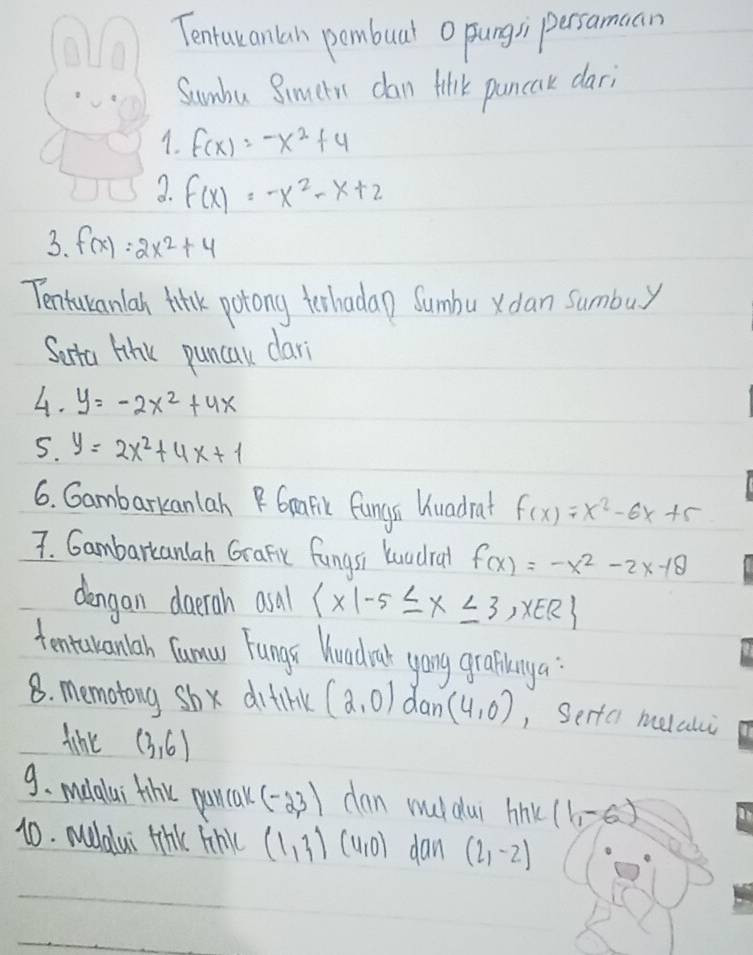 Tentukanlah pembuat 0 pungsi persamaan
Sumbu Simetri dan titik puncak dari
1. f(x) = -x² + 4
2. f(x) = -x² - x + 2
3. f(x) = 2x² + 4
Tentukanlah titik potong terhadap Sumbu x dan Sumbu y
Serta titik puncak dari
4. y = -2x² + 4x
5. y = 2x² + 4x + 1
6. Gambarkanlah Grafik fungsi kuadrat f(x) = x² - 6x + 5
7. Gambarkanlah Grafik fungsi kuadrat f(x) = -x² - 2x + 8
dengan daerah asal {x | -5 ≤ x ≤ 3, x ∈ R}
tentukanlah rumus Fungsi Kuadrat yang grafiknya:
8. memotong sbx dititik (2,0) dan (4,0), Serta melalui
titik (3,6)
9. melalui titik puncak (-2,3) dan melalui titik (1,-6)
10. Melalui titik titik (1,3) (4,0) dan (2,-2)